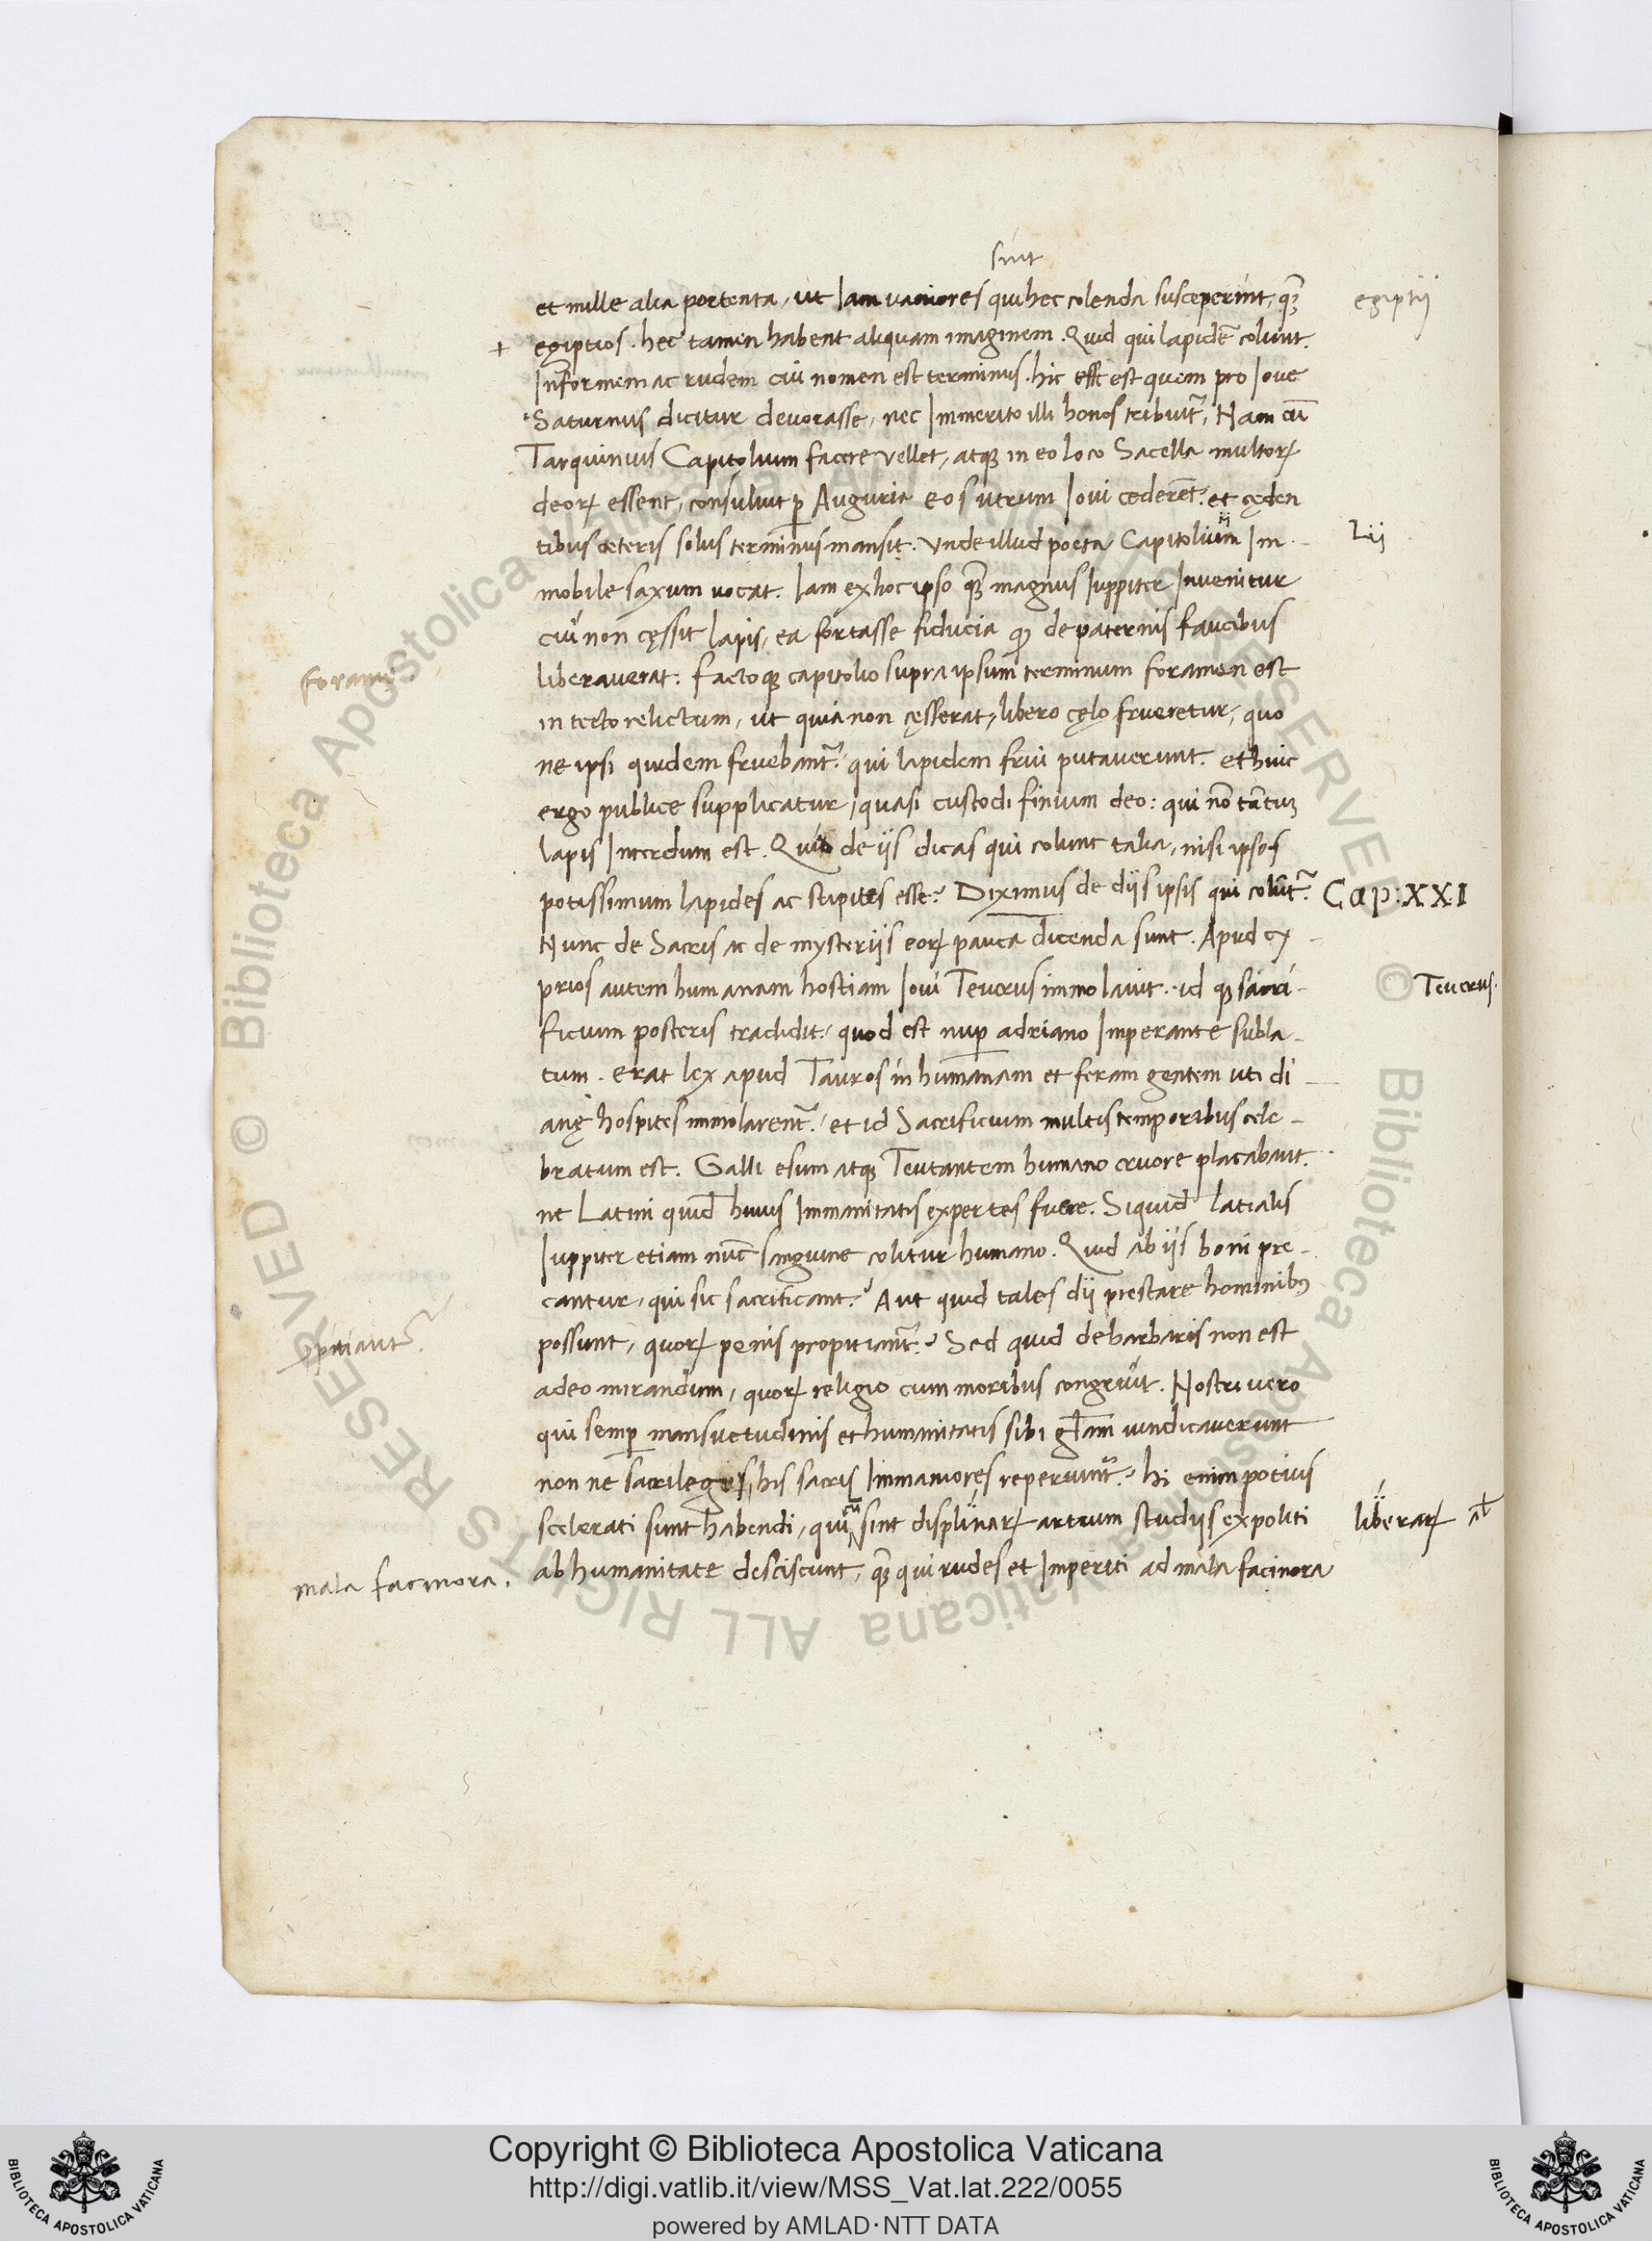 sint
et mille alia portenta, ut Iam vaniores qui hec colenda susceperint, qȝ̃
egiptii
+ egiptios. hec tamen habent aliquam imaginem. Quid qui lapidē colunt.
Informem ac rudem cui nomen est terminus. hic est quem pro Ioue
Saturnus dicitur deuorasse, nec Immerito illi honos tribuit̃, Nam cũ
Tarquinius Capitolium facere vellet, atqȝ in eo loco Sacella multoꝝ
deoꝝ essent, consuluit ꝑ Auguria eos utrum Ioui cederēt. et cęden
tibus ceteris solus terminus mansit. Vnde illud poeta Capitolium Im-
Lii
mobile saxum vocat. Iam ex hoc ipso qȝ̃ magnus Iuppiter Inuenitur
cui non cęssit lapis, ea fortasse fiducia qȝ de paternis faucibus
liberauerat: factoqȝ capitolio supra ipsum terminum foramen est
foramē
in tecto relictum, ut quia non cęsserat, libero cęlo frueretur, quo
ne ipsi quidem fruebant̃. qui lapidem frui putauerunt. et huic
ergo publice supplicatur, quasi custodi finium deo: qui nō tātuȝ
lapis Interdum est. Quid de iis dicas qui colunt talia, nisi ipsos
potissimum lapides ac stipites esse? Diximus de diis ipsis qui colūt̃.
Cap: XXI
Nunc de Sacris ac de mysteriis eoꝝ pauca dicenda sunt. Apud cy-
prios autem humanam hostiam Ioui Teucrus immolauit. id qȝ sacri-
Teucrus.
ficium posteris tradidit, quod est nuꝑ adriano Imperante subla-
tum. erat lex apud Tauros inhumanam et feram gentem uti di-
anę hospites immolarent̃. et id Sacrificium multis temporibus cele-
bratum est. Galli esum atqȝ Teutantem humano cruore placabant.
ne Latini quid̃ huius Immanitatis expertes fuere. Siquid̃ latialis
Iuppiter etiam nūc sanguine colitur humano. Quid ab iis boni pre-
cantur, qui sic sacrificant? Aut quid tales dii prestare hominibꝰ
possunt, quoꝝ penis propitiant̃? Sed quid de barbaris non est
ꝓpitiant̃.
adeo mirandum, quoꝝ religio cum moribus congruit. Nostri uero
qui semꝑ mansuetudinis et humanitatis sibi gl̃am uindicauerunt
non ne sacrilegis his sacris Immaniores reperiunt̃? hi enim potius
scelerati sunt habendi, qui cū sint displinaꝝ artium studiis expoliti
liberaꝝ al̃
ab humanitate desciscunt, qȝ̃ qui rudes et Imperiti ad mala facinora
mala facinora.
Copyright © Biblioteca Apostolica Vaticana
http://digi.vatlib.it/view/MSS_Vat.lat.222/0055
powered by AMLAD·NTT DATA
BIBLIOTECA APOSTOLICA VATICANA
BIBLIOTECA APOSTOLICA VATICANA
© Biblioteca Apostolica Vaticana ALL RIGHTS RESERVED
© Biblioteca Apostolica Vaticana ALL RIGHTS RESERVED